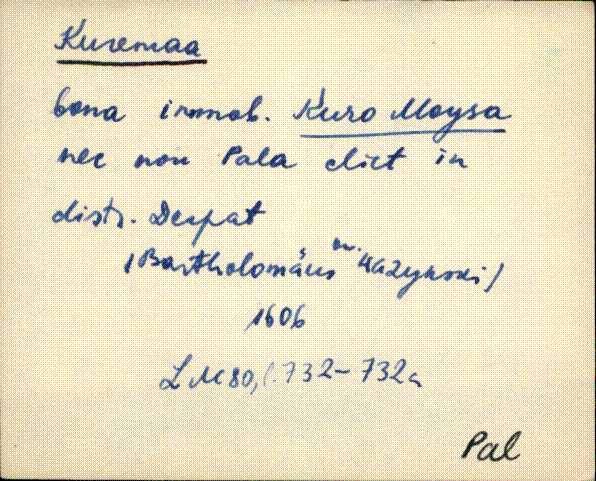 Kuremaa
bona immob. Kuro Moysa
nec non Pala dict in
distr. Derpat
/Bartholomäus Wazynski/
1606
LM 80, l. 732-732a
Pal